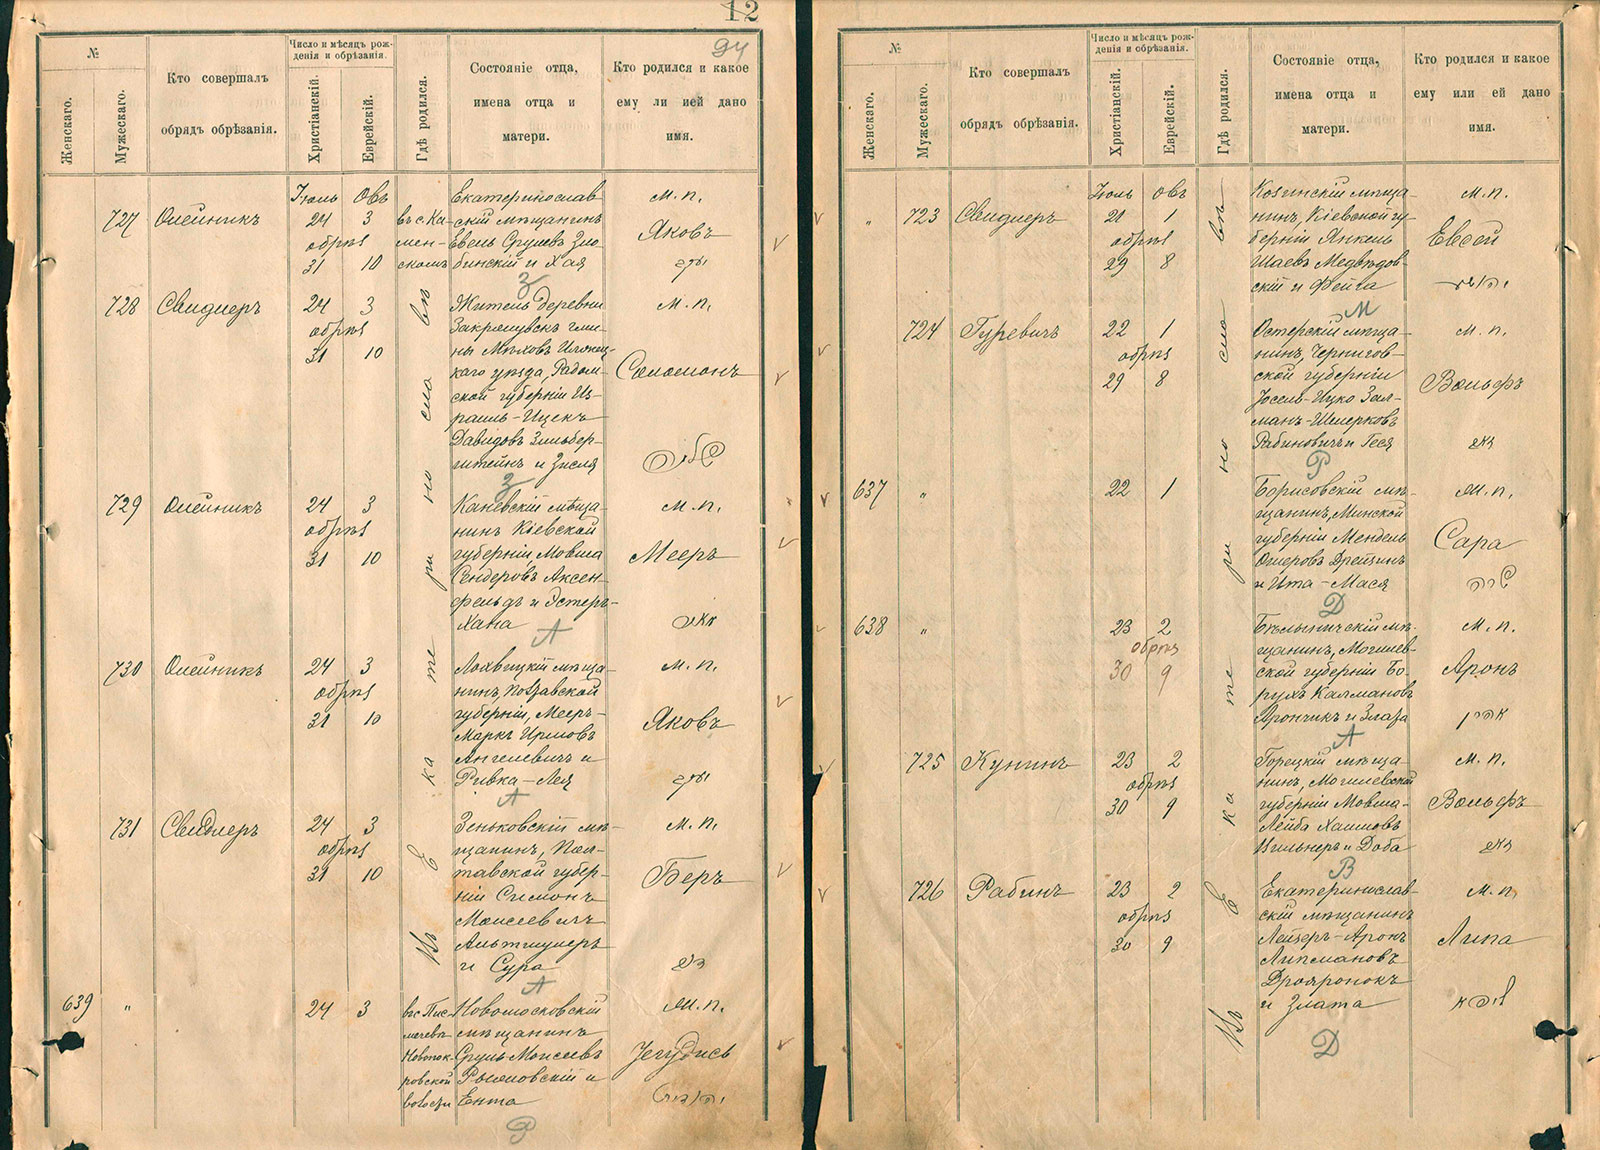 12
94
№
Женскаго.
Мужескаго.
Кто совершалъ
обрядъ обрѣзанія.
Число и мѣсяцъ рож-
денія и обрѣзанія.
Христіанскій.
Еврейскій.
Гдѣ родился.
Состояніе отца,
имена отца и
матери.
Кто родился и какое
ему ли ией дано
имя.
727
Олейникъ
Іюль Овъ
24 3
обрѣз
31 10
въ с. Ка-
мен-
скомъ
Екатеринослав
скій мѣщанинъ
Евель Срулевъ Зло
бинскій и Хая
З
м. п.
Яковъ
יעקב
728
Свидлеръ
24 3
обрѣз
31 10
Житель деревни
ны Мѣховъ Илжец-
каго уѣзда, Радом-
ской губерніи Из-
раиль-Ицекъ
Давидовъ Зильбер-
штейнъ и Зисля
З
м. п.
Соломонъ
729
Олейникъ
24 3
обрѣз
31 10
Каневскій мѣща-
нинъ Кіевской
губерніи, Мовша
Сендеровъ Аксен-
фельдъ и Эстеръ-
Хана
А
м. п.
Мееръ
מאיר
730
Олейникъ
24 3
обрѣз
31 10
Лохвицкій мѣща-
нинъ, Полтавской
губерніи, Мееръ-
Маркъ
Ангелевичъ и
Ривка-Лея
А
м. п.
Яковъ
יעקב
731
Свидлеръ
24 3
обрѣз
31 10
Зеньковскій мѣ-
щанинъ, Пол-
тавской губер-
ніи Симонъ
Моисеевичъ
Альтшулеръ
и Сура
А
м. п.
Беръ
בער
639
"
24 3
въ с. Пис
мечева
Новопок-
ровской
волости
Новомосковскій
мѣщанинъ
Сруль Моисеевъ
и
Ента
Р
м. п.
Іегудисъ
יהודית
Въ Екатеринославѣ
№
Женскаго.
Мужескаго.
Кто совершалъ
обрядъ обрѣзанія.
Число и мѣсяцъ рож-
денія и обрѣзанія.
Христіанскій.
Еврейскій.
Гдѣ родился.
Состояніе отца,
имена отца и
матери.
Кто родился и какое
ему или ей дано
имя.
"
723
Свидлеръ
Іюль Овъ
21 1
обрѣз
29 8
мѣща-
нинъ, Кіевской гу-
берніи Янкель
Шаевъ Медвѣдов-
скій и Фейга
М
м. п.
Евсей
724
Гуревичъ
22 1
обрѣз
29 8
Остерскій мѣща-
нинъ, Чернигов-
ской губерніи
Іосель-Ицко Зал-
манъ-Шмерковъ
Рабиновичъ и Геся
Р
м. п.
Вольфъ
וואלף
637
"
22 1
Борисовскій мѣ-
щанинъ, Минской
губерніи Мендель
Ошеровъ Дрейзинъ
и Ита-Мася
Д
м. п.
Сара
שרה
638
"
23 2
обрѣз
30 9
Бѣлыничскій мѣ-
щанинъ, Могилев-
ской губерніи Бо-
рухъ Калмановъ
Арончикъ и Злата
А
м. п.
Аронъ
אהרן
725
Кунинъ
23 2
обрѣз
30 9
Горецкій мѣща-
нинъ, Могилевской
губерніи Мовша-
Лейба Хаимовъ
Вильнеръ и Доба
В
м. п.
Вольфъ
וואלף
726
Рабинъ
23 2
обрѣз
30 9
Екатеринослав-
скій мѣщанинъ
Лейзеръ-Аронъ
Липмановъ
и Злата
Д
м. п.
Липа
ליפא
Въ Екатеринославѣ